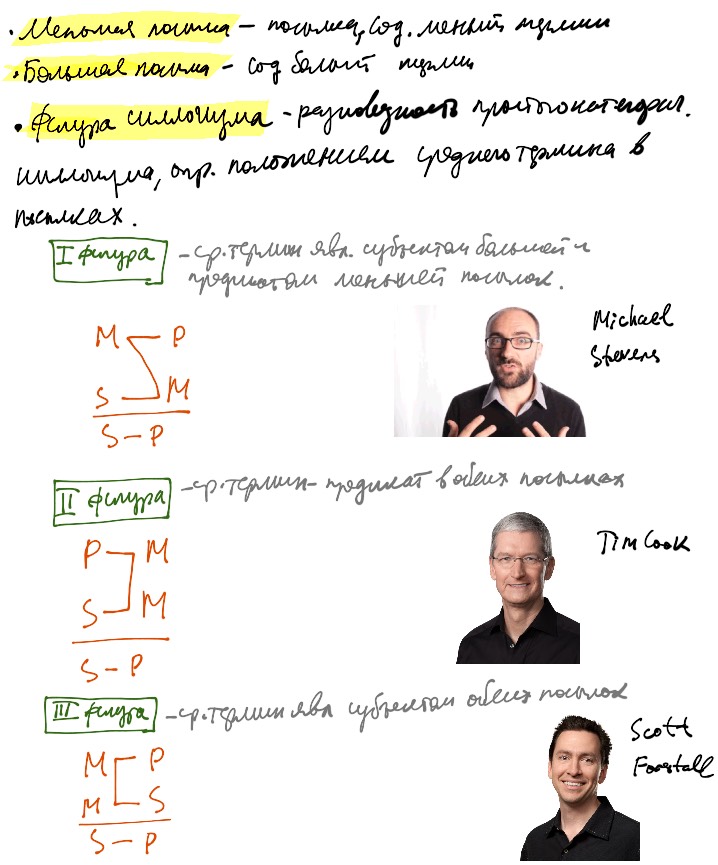 • Меньшая посылка – посылка, сод. меньший термин
• Большая посылка – сод больший термин
• Фигура силлогизма – разновидность простого категорич.
силлогизма, опр. положением среднего термина в
посылках.
I фигура – ср. термин явл. субъектом большей и
предикатом меньшей посылок.
M P
S M
S – P
Michael
Stevens
II фигура – ср. термин – предикат в обеих посылках
P M
S M
S – P
Tim Cook
III фигура – ср. термин явл субъектом обеих посылок
M P
M S
S – P
Scott
Forstall